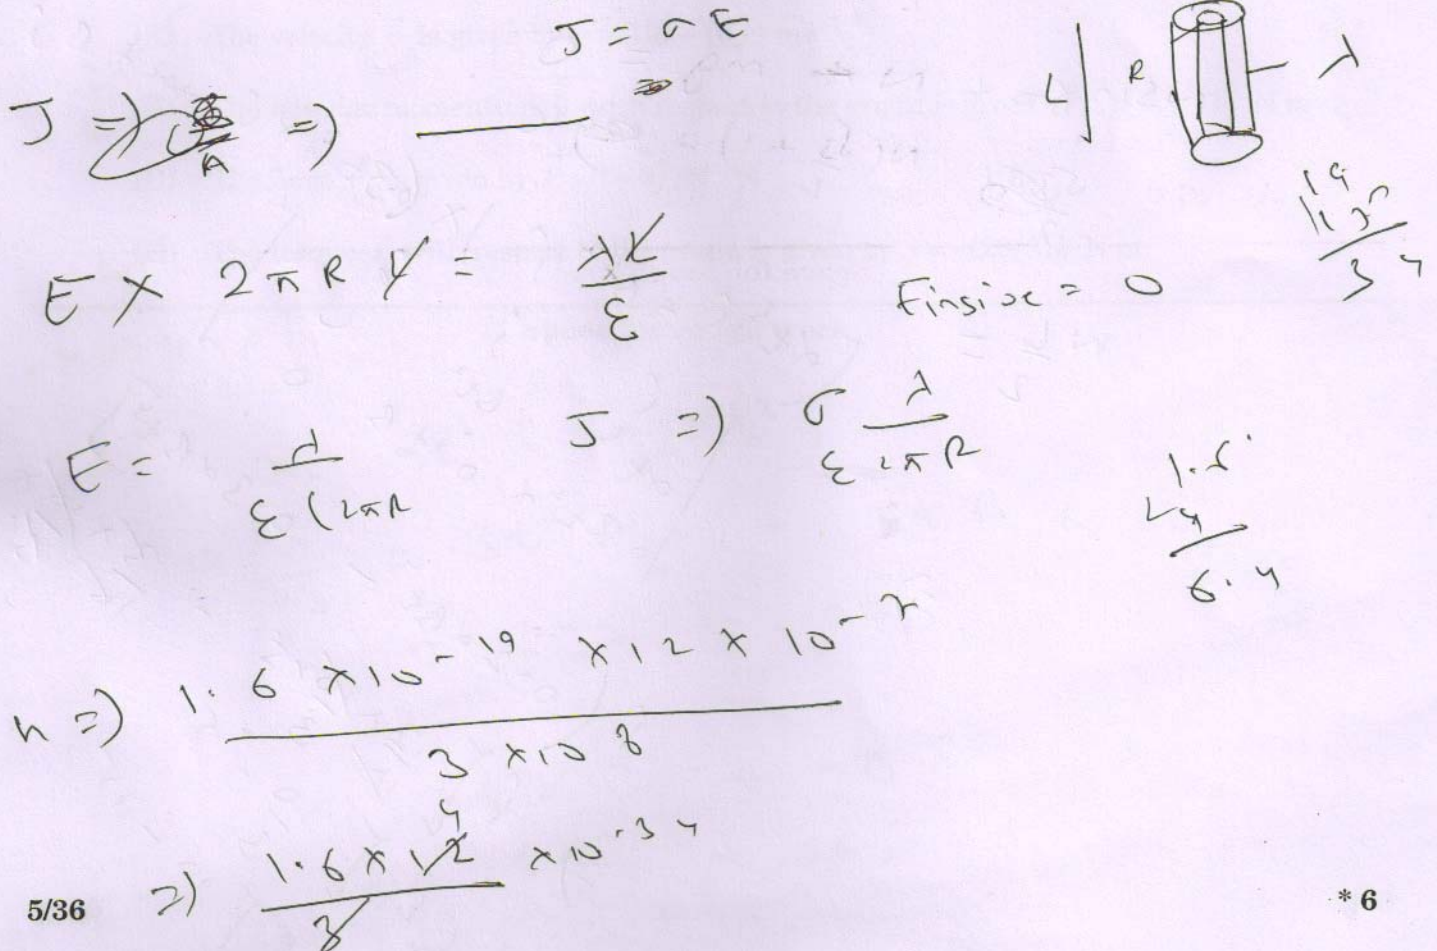 J = σE
J ⇒ ⇒
L R λ
E × 2πR L = λL / ε
Einside = 0
19
15
34
E = λ / ε(2πR
J ⇒ σ λ / ε 2πR
1.6
×4
6.4
h ⇒ 1.6 × 10^-19 × 12 × 10^-7 / 3 × 10^8
⇒ 1.6 × 12 4 / 3 × 10^-34
5/36 * 6